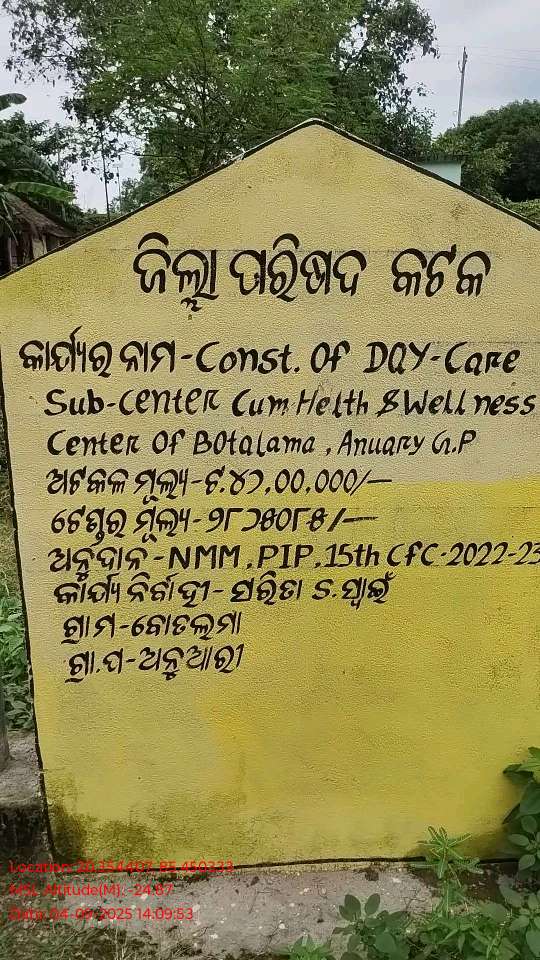 ଜିଲ୍ଲା ପରିଷଦ କଟକ
କାର୍ଯ୍ୟର ନାମ-Const. Of DAY-Care
Sub-Center Cum Helth & Wellness
Center Of BOtalama, Anuary G.P
ଅଟକଳ ମୂଲ୍ୟ-ଟ.୪୨,00,000/-
ଟେଣ୍ଡର ମୂଲ୍ୟ-
ଅନୁଦାନ-NMM, PIP, 15th CFC-2022-23
କାର୍ଯ୍ୟ ନିର୍ବାହୀ- ସରିତା ସ୍ୱାଇଁ
ଗ୍ରାମ-ବୋତଲମା
ଗ୍ରା.ପ-ଅନୁଆରୀ
Location: 20.354407, 85.450333
MSL Altitude(M): -24.87
Date: 04-09-2025 14:09:53